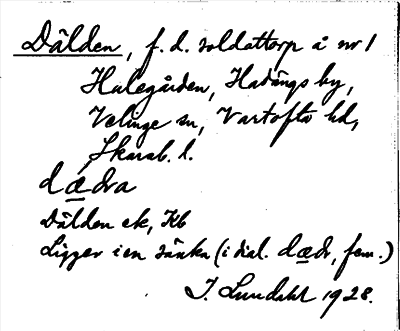 Dälden, f. d. soldattorp å nr 1
Halegården, Hadängs by,
Velinge sn, Vartofta hd,
Skarab. l.
dædra
Dälden ek, Kb
Ligger i en sänka (i dial. dædr, fem.)
J. Lundahl 1928.